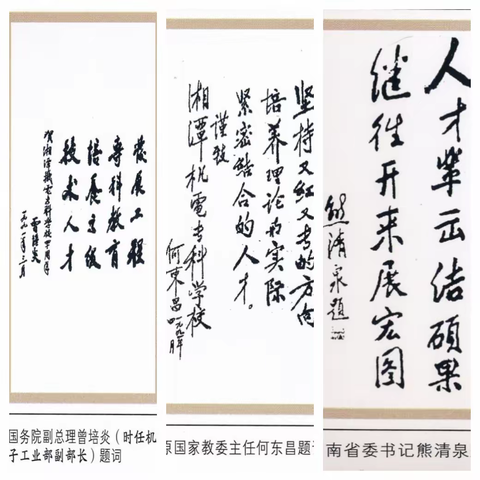 发展工程
专科教育
培养高级
技术人才
贺湘潭机电专科学校四十周年
曾培炎
一九九一年三月
国务院副总理曾培炎（时任机
子工业部副部长）题词
坚持又红又专的方向
培养理论与实际
紧密结合的人才。
谨致
湘潭机电专科学校
何东昌
原国家教委主任何东昌题
人才辈出结硕果
继往开来展宏图
熊清泉题
南省委书记熊清泉